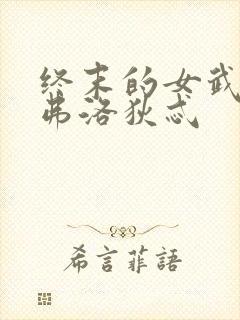 终末的女武
弗洛狄忒
希言菲語